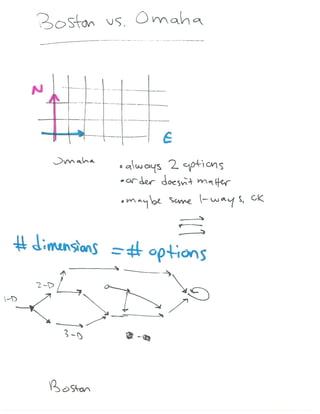 Boston vs. Omaha
N
E
Omaha
• always 2 options
• order doesn't matter
• maybe some 1-ways, OK
# dimensions = # options
2-D
1-D
3-D
Boston